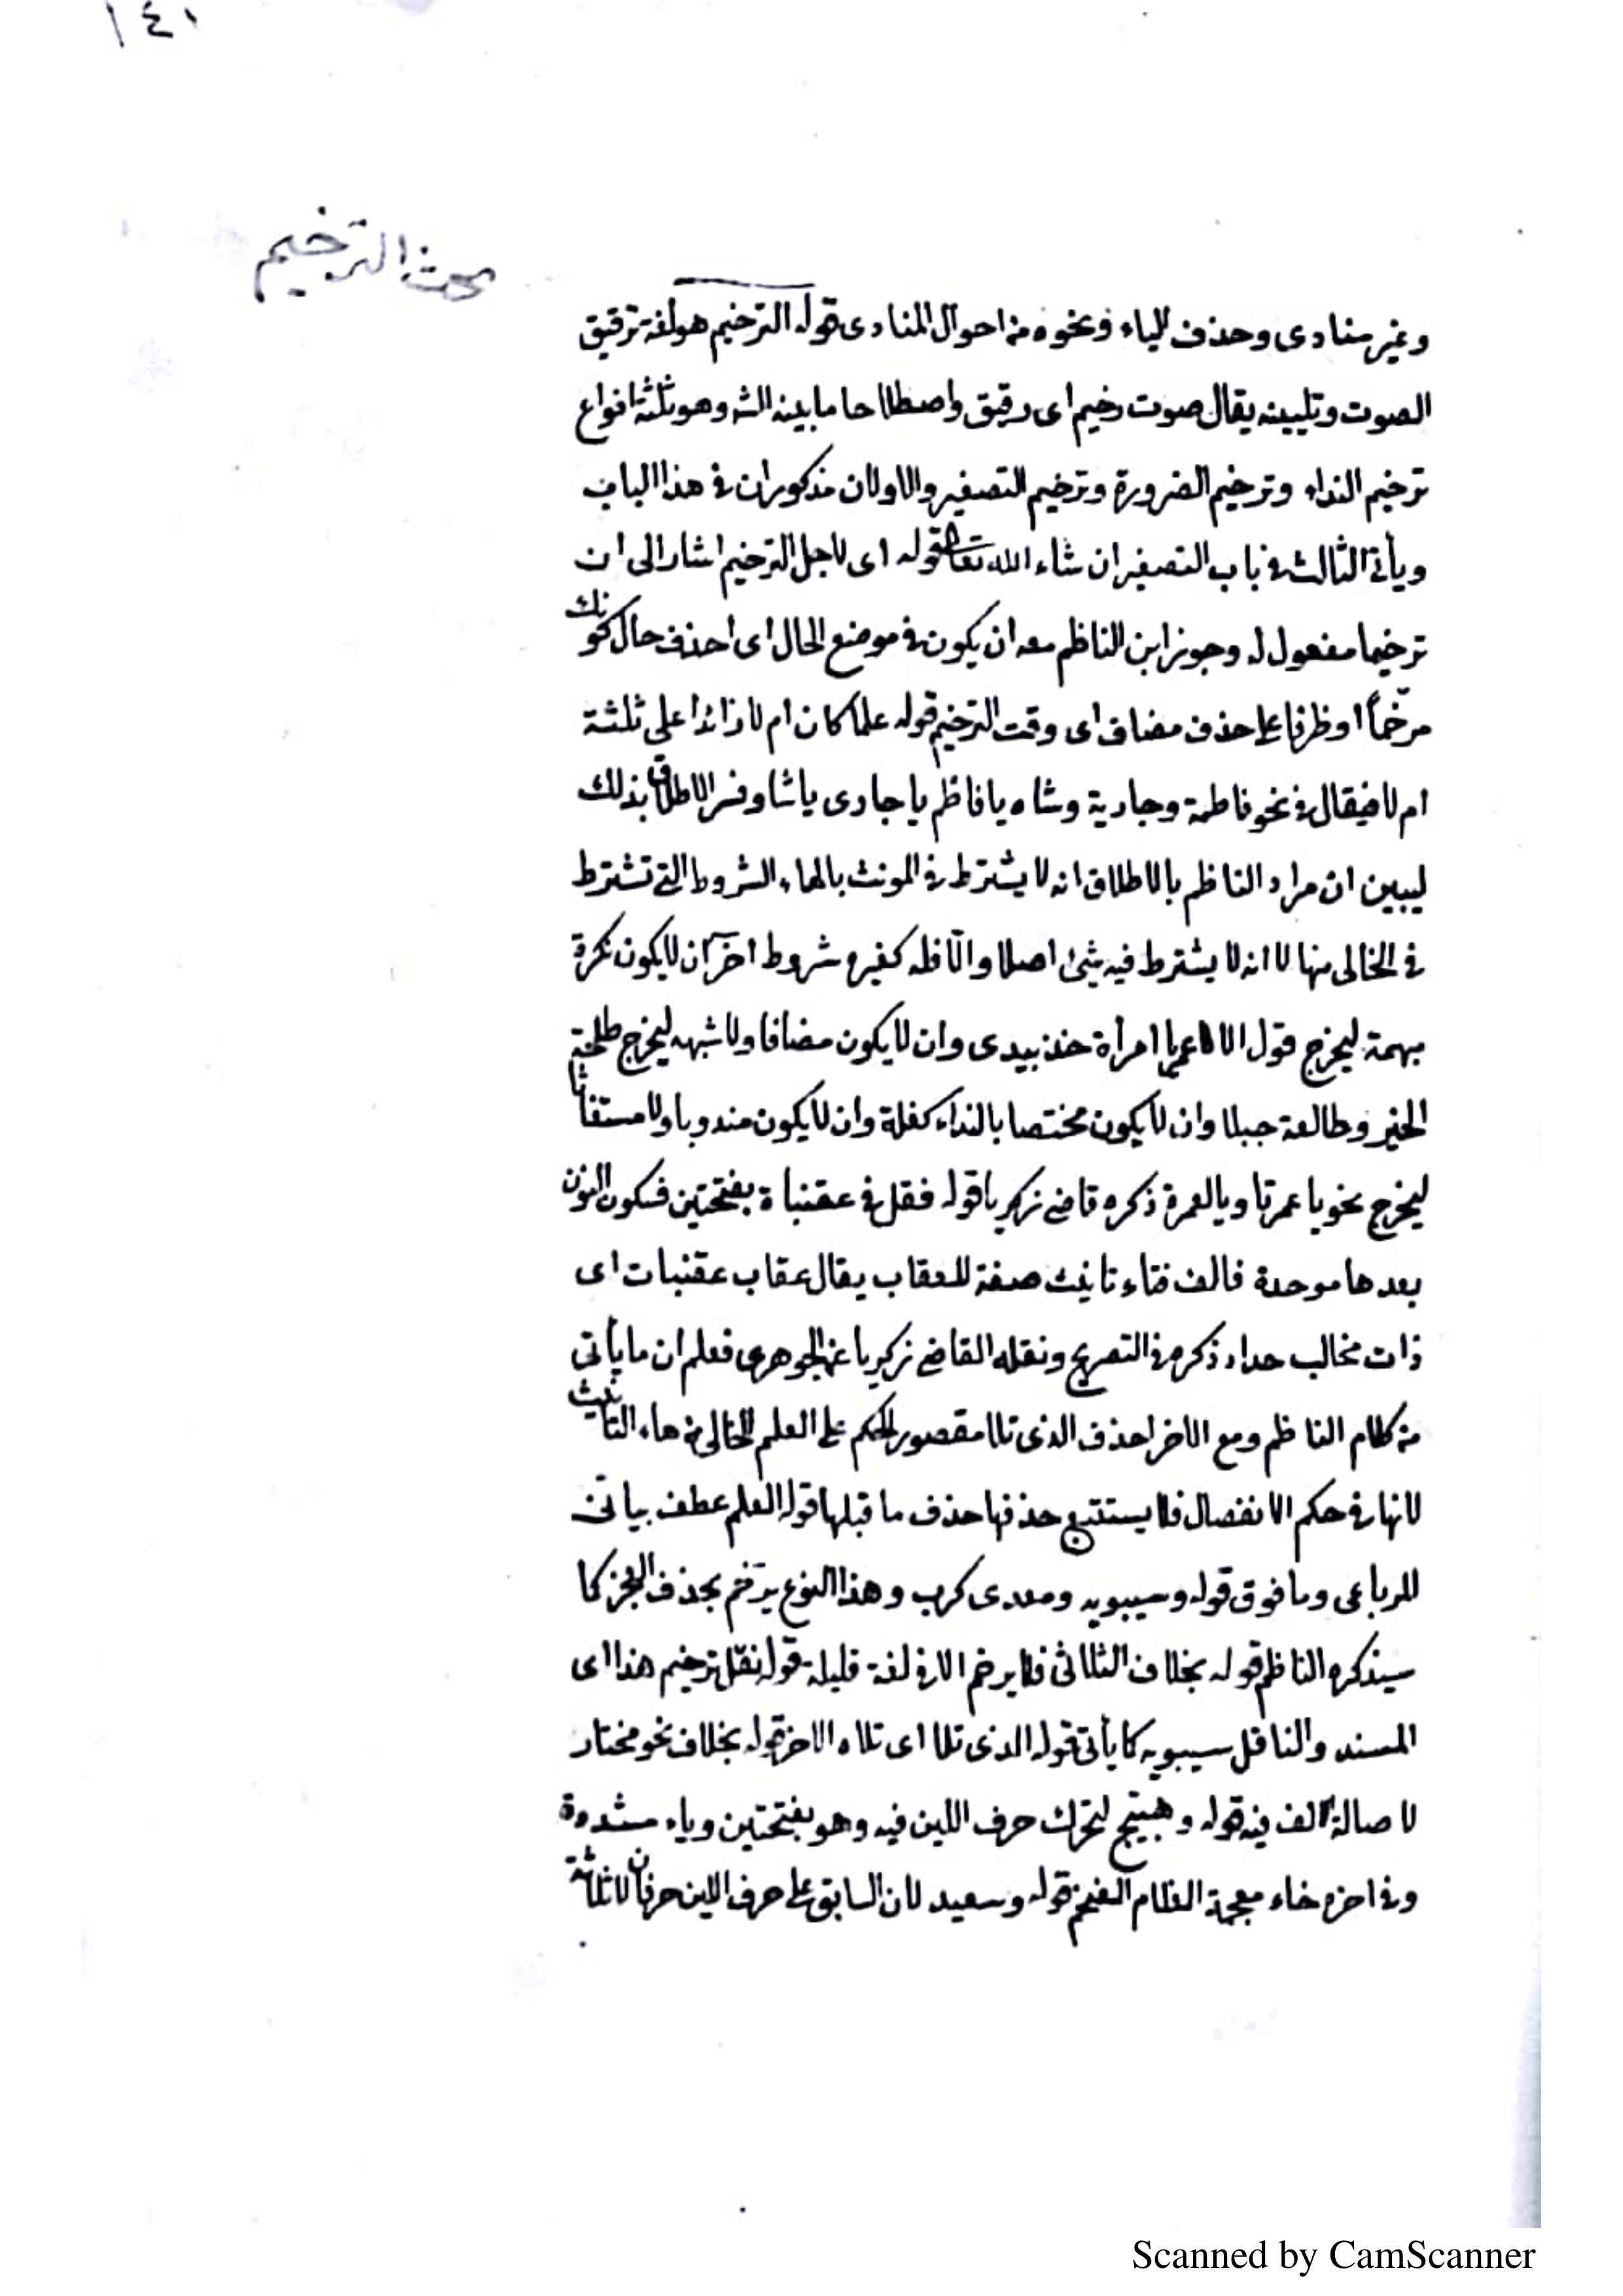 ١٤١
بحث الترخيم
وغير منادى وحذف الياء ونحوه من احوال المنادى قوله الترخيم هو لغة ترقيق
الصوت وتليينه يقال صوت رخيم اى رقيق واصطلاحا ما بينه الش وهو ثلثة انواع
ترخيم النداء وترخيم الضرورة وترخيم التصغير والاولان مذكوران في هذا الباب
ويأتي الثالث في باب التصغير ان شاء الله تعالى قوله اى لاجل الترخيم اشار الى ان
ترخيما مفعول له وجوز ابن الناظم معه ان يكون في موضع الحال اى احذف حال كونك
مرخّماً او ظرفا على حذف مضاف اى وقت الترخيم قوله علما كان ام لا زائدا على ثلثة
ام لا فيقال في نحو فاطمة وجارية وشاه يا فاطم يا جارى يا شا وفسر الاطلاق بذلك
ليبين ان مراد الناظم بالاطلاق انه لا يشترط في المونث بالهاء الشروط التي تشترط
في الخالى منها لا انه لا يشترط فيه شئ اصلا والّا فله كغيره شروط اخر ان لا يكون نكرة
مبهمة ليخرج قول الاعمى يا امرأة خذ بيدى وان لا يكون مضافا ولا شبهه ليخرج طلحة
الخير وطالعة جبلا وان لا يكون مختصا بالنداء كفلة وان لا يكون مندوبا ولا مستغاثا
ليخرج نحو يا عمرتا ويا لعمرة ذكره قاضى زكريا قوله فقل في عقنباة بفتحتين فسكون النون
بعدها موحدة فالف فتاء تانيث صفة للعقاب يقال عقاب عقنبات اى
ذات مخالب حداد ذكره في التصريح ونقله القاضى زكريا عن الجوهرى فعلم ان ما يأتى
من كلام الناظم ومع الاخر احذف الذى تلا مقصور الحكم على العلم الخالى من هاء التانيث
لانها في حكم الانفصال فلا يستتبع حذفها حذف ما قبلها قوله العلم عطف بيانى
للرباعى وما فوق قوله وسيبويه ومعدى كرب وهذا النوع يرخم بحذف العجز كما
سيذكره الناظم قوله بخلاف الثلاثى فلا يرخم الا في لغة قليلة قوله نقل ترخيم هذا اى
المسند والناقل سيبويه كما يأتى قوله الذى تلا اى تلاه الاخر قوله بخلاف نحو مختار
لاصالة الف فيه قوله وهبيّخ لتحرك حرف اللين فيه وهو بفتحتين وياء مشددة
وفي اخره خاء معجمة الغلام قوله وسعيد لان السابق على حرف اللين حرفان لا ثلاثة
Scanned by CamScanner